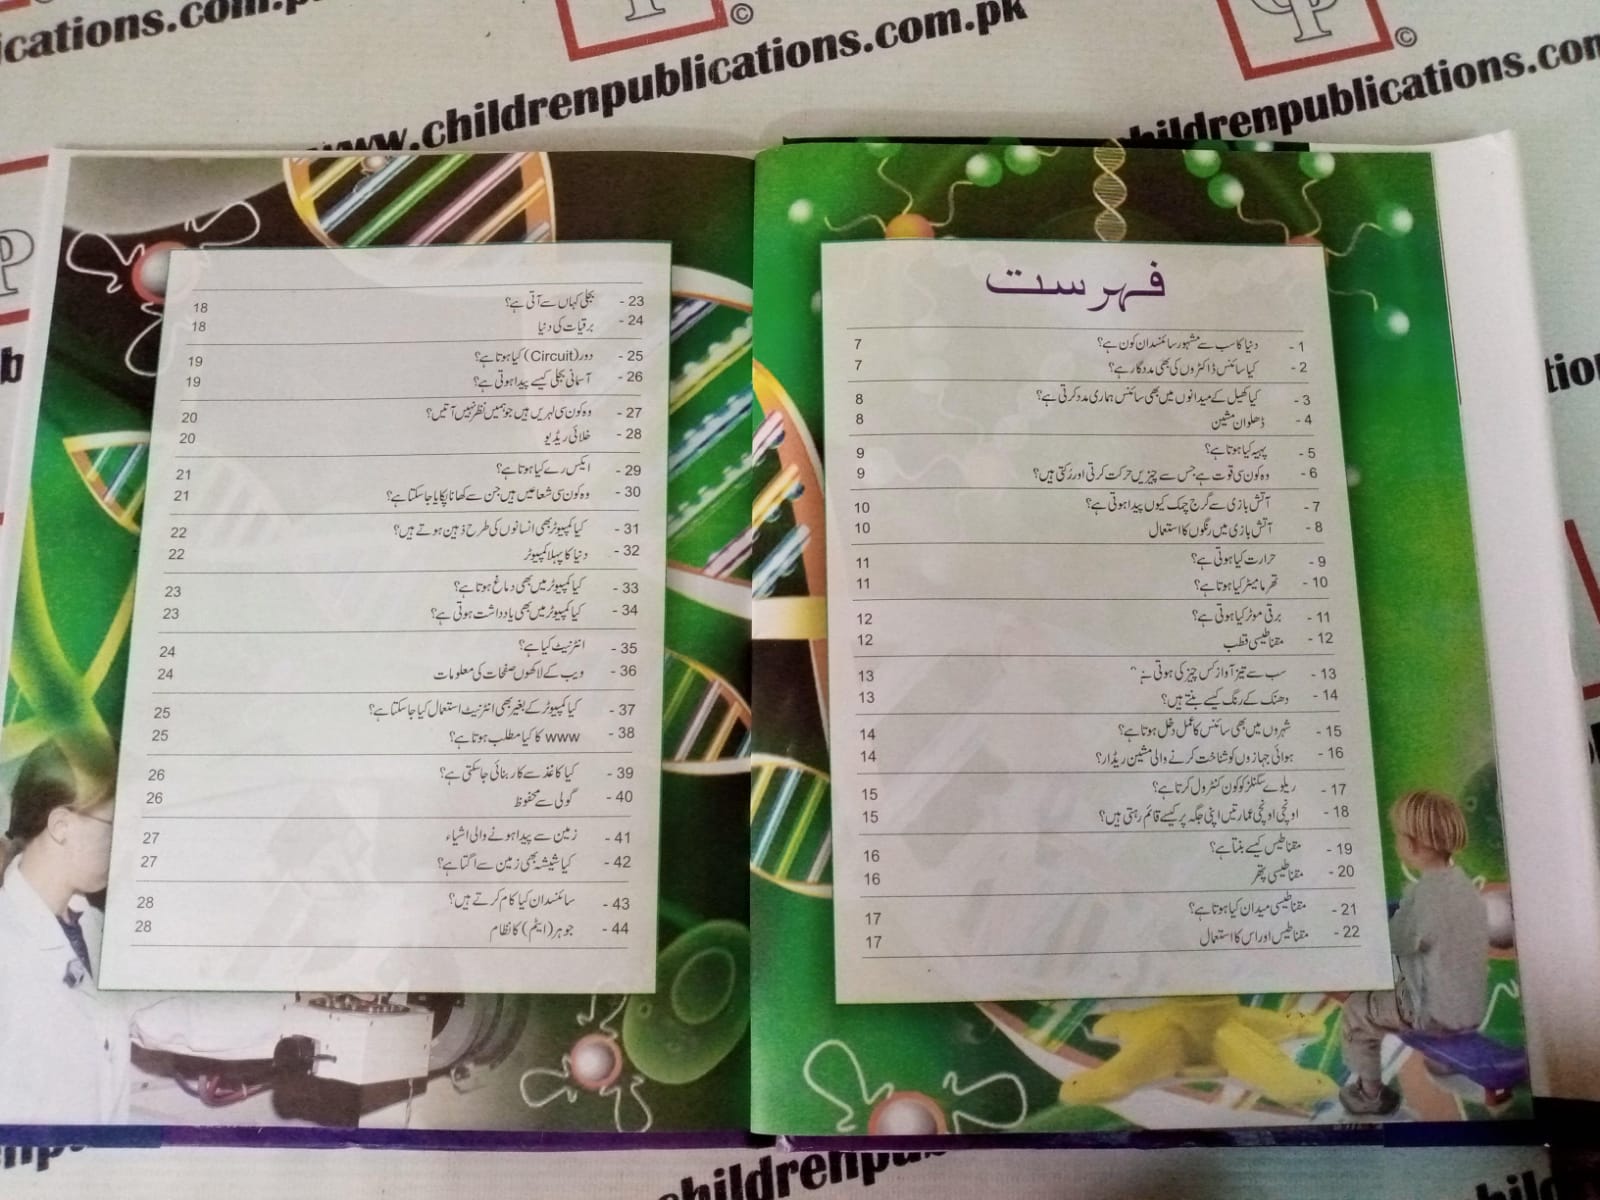 ications.com.p
www.childrenpublications.com.pk
©
childrenpublications.com
©
فہرست
1 - دنیا کا سب سے مشہور سائنسدان کون ہے؟ 7
2 - کیا سائنس ڈاکٹروں کی بھی مددگار ہے؟ 7
3 - کیا کھیل کے میدانوں میں بھی سائنس ہماری مدد کرتی ہے؟ 8
4 - ڈھلوان مشین 8
5 - پہیہ کیا ہوتا ہے؟ 9
6 - وہ کون سی قوت ہے جس سے چیزیں حرکت کرتی اور رُکتی ہیں؟ 9
7 - آتش بازی سے گرج چمک کیوں پیدا ہوتی ہے؟ 10
8 - آتش بازی میں رنگوں کا استعمال 10
9 - حرارت کیا ہوتی ہے؟ 11
10 - تھرمامیٹر کیا ہوتا ہے؟ 11
11 - برقی موٹر کیا ہوتی ہے؟ 12
12 - مقناطیسی قطب 12
13 - سب سے تیز آواز کس چیز کی ہوتی 13
14 - دھنک کے رنگ کیسے بنتے ہیں؟ 13
15 - شہروں میں بھی سائنس کا عمل دخل ہوتا ہے؟ 14
16 - ہوائی جہازوں کو شناخت کرنے والی مشین ریڈار؟ 14
17 - ریلوے سگنلز کو کون کنٹرول کرتا ہے؟ 15
18 - اونچی اونچی عمارتیں اپنی جگہ پر کیسے قائم رہتی ہیں؟ 15
19 - مقناطیس کیسے بنتا ہے؟ 16
20 - مقناطیسی پتھر 16
21 - مقناطیسی میدان کیا ہوتا ہے؟ 17
22 - مقناطیس اور اس کا استعمال 17
23 - بجلی کہاں سے آتی ہے؟ 18
24 - برقیات کی دنیا 18
25 - دور (Circuit) کیا ہوتا ہے؟ 19
26 - آسمانی بجلی کیسے پیدا ہوتی ہے؟ 19
27 - وہ کون سی لہریں ہیں جو ہمیں نظر نہیں آتیں؟ 20
28 - خلائی ریڈیو 20
29 - ایکس رے کیا ہوتا ہے؟ 21
30 - وہ کون سی شعاعیں ہیں جن سے کھانا پکایا جا سکتا ہے؟ 21
31 - کیا کمپیوٹر بھی انسانوں کی طرح ذہین ہوتے ہیں؟ 22
32 - دنیا کا پہلا کمپیوٹر 22
33 - کیا کمپیوٹر میں بھی دماغ ہوتا ہے؟ 23
34 - کیا کمپیوٹر میں بھی یادداشت ہوتی ہے؟ 23
35 - انٹرنیٹ کیا ہے؟ 24
36 - ویب کے لاکھوں صفحات کی معلومات 24
37 - کیا کمپیوٹر کے بغیر بھی انٹرنیٹ استعمال کیا جا سکتا ہے؟ 25
38 - www کا کیا مطلب ہوتا ہے؟ 25
39 - کیا کاغذ سے کار بنائی جا سکتی ہے؟ 26
40 - گولی سے محفوظ 26
41 - زمین سے پیدا ہونے والی اشیاء 27
42 - کیا شیشہ بھی زمین سے اگتا ہے؟ 27
43 - سائنسدان کیا کام کرتے ہیں؟ 28
44 - جوہر (ایٹم) کا نظام 28
childrenpu